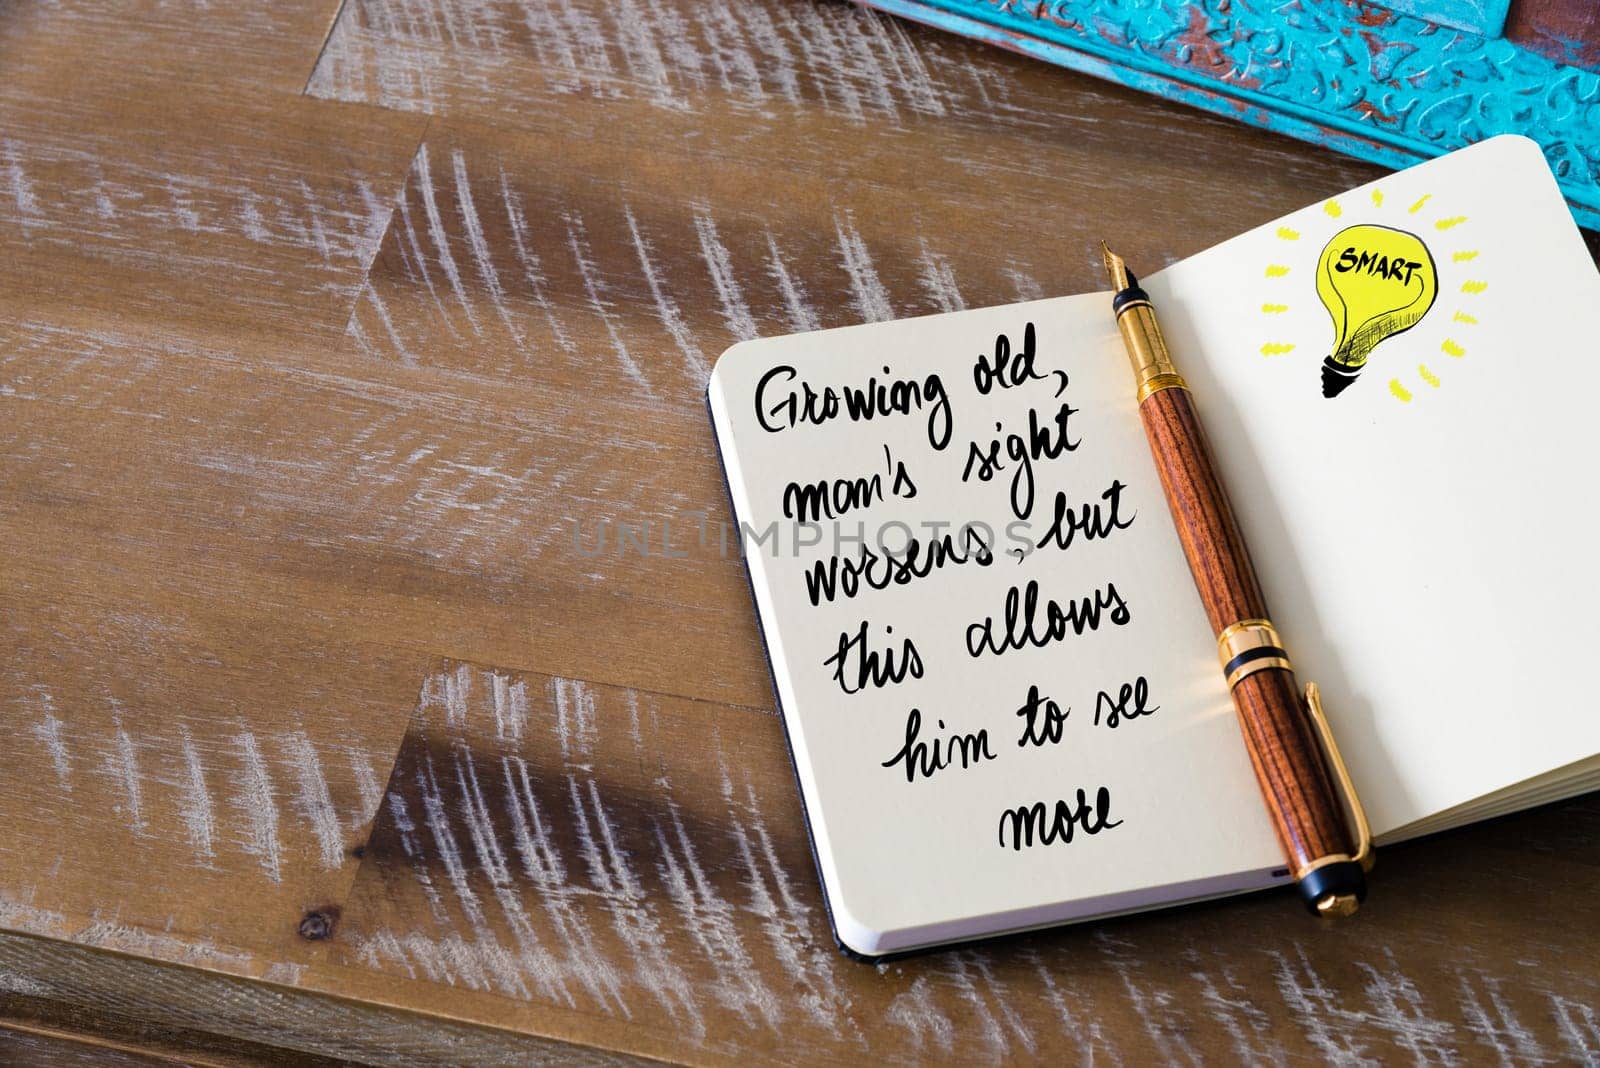 Growing old,
man's sight
worsens, but
this allows
him to see
more
SMART
UNLIMPHOTOS